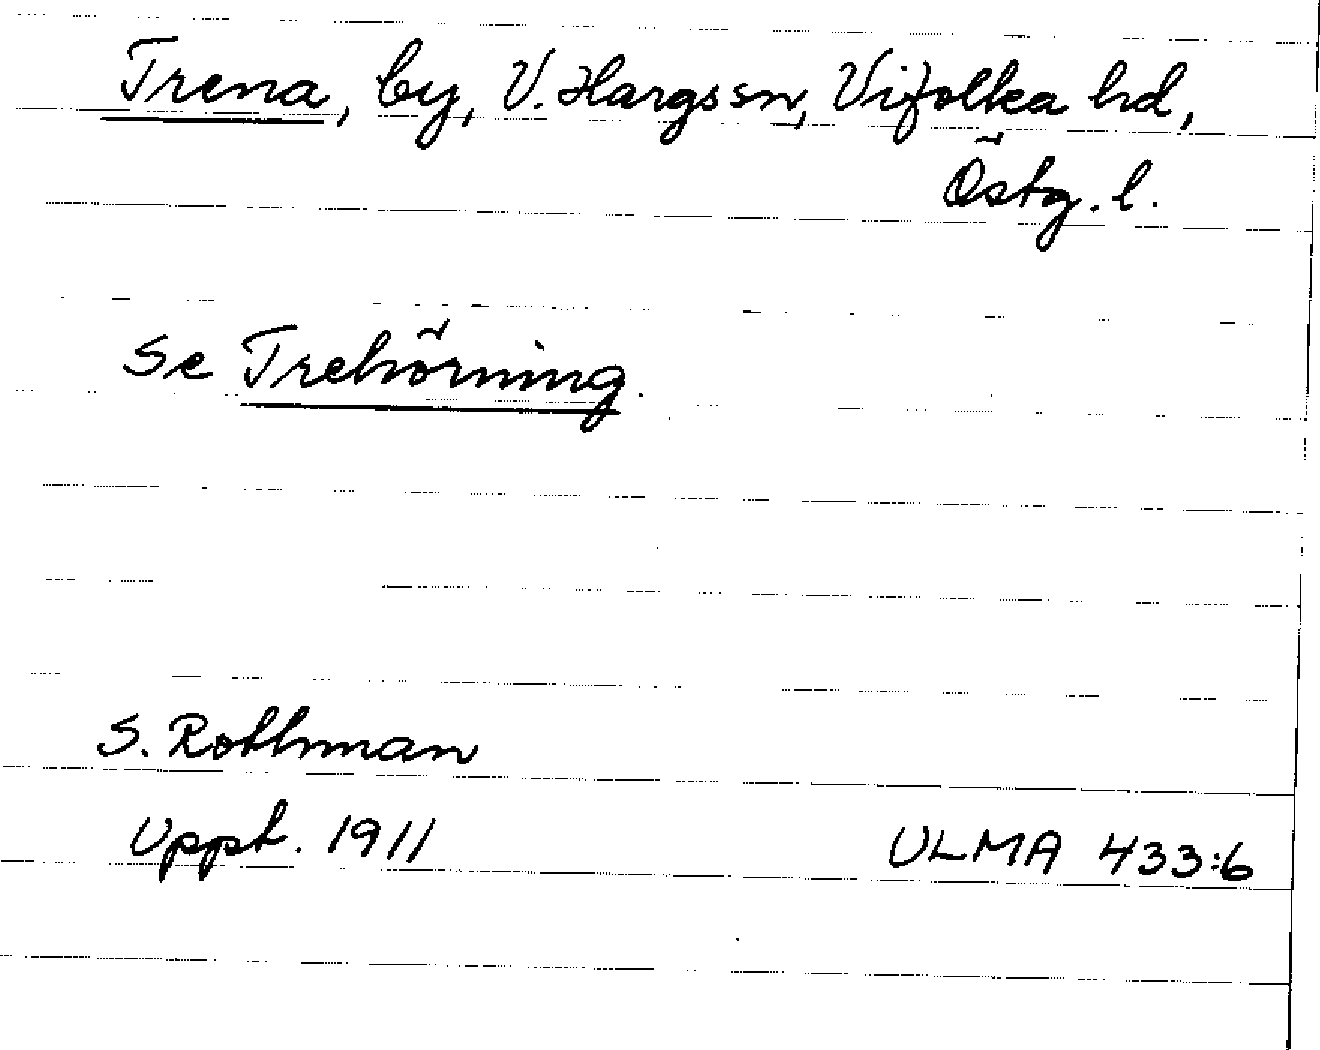 Trena, by, V. Hargs sn, Vifolka hd,
Östg. l.
Se Trehörning.
S. Rothman
Uppt. 1911
ULMA 433:6